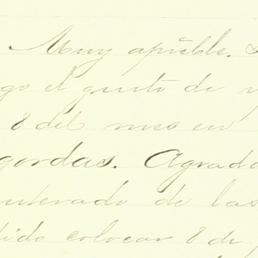 Muy apreble.
go el gusto de
8 del mes en
gordas. Agrado
enterado de las
dido colocar 8 de